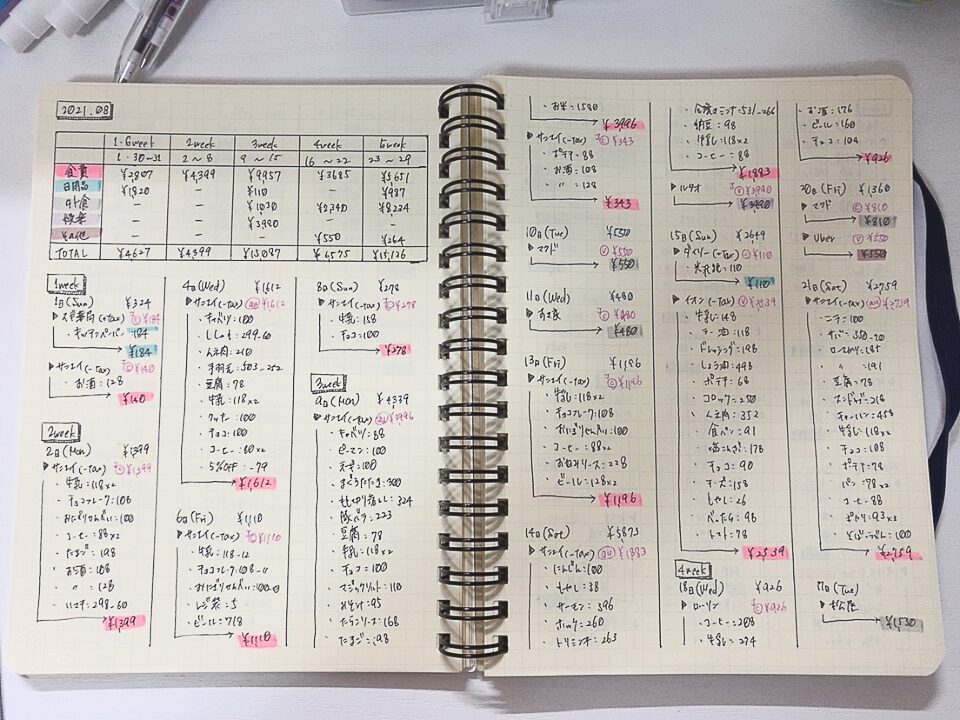 2021.08
1·6week 2week 3week 4week 5week
1·30~31 2~8 9~15 16~22 23~29
食費 ¥2807 ¥4,399 ¥9957 ¥3685 ¥5,651
日用品 ¥1,820 – ¥110 – ¥987
外食 – – ¥1030 ¥2,340 ¥8224
娯楽 – – ¥3,990 – –
その他 – – – ¥550 ¥264
TOTAL ¥4627 ¥4399 ¥15087 ¥6575 ¥15,126
1week
1日(Sun) ¥324
¥184
サンエイ(-tax) ¥140
・お酒:128
¥140
2week
2日(Mon) ¥1399
サンエイ(-tax) ¥1399
・牛乳:118×2
・チョコフレーク:108
・おにぎりせんべい:100
・コーヒー:88×2
・たまご:198
・お酒:108
・〃:128
・ハマチ:298-60
¥1,399
4日(Wed) ¥1612
サンエイ(-tax) ¥1612
・キャベツ:100
・ししゃも:299-60
・手羽元:503-252
・豆腐:78
・牛乳:118×2
・クッキー:100
・チョコ:100
・コーヒー:80×2
・5%OFF:-79
¥1,612
6日(Fri) ¥1,110
サンエイ(-tax) ¥1110
・牛乳:118-12
・チョコフレーク:108-11
・レジ袋:5
・ビール:718
¥1,110
8日(Sun) ¥278
サンエイ(-tax) ¥278
・牛乳:158
・チョコ:100
¥278
3week
9日(Mon) ¥4339
サンエイ(-tax) ¥3,996
・キャベツ:88
・ピーマン:100
・もも切り落とし:324
・豚バラ:223
・豆腐:78
・牛乳:118×2
・チョコ:100
・マジックリン:110
・みそ汁:95
・たまご:198
・お米:1580
¥3,996
サンエイ(-tax) ¥343
・ポテチ:88
・お酒:108
・〃:128
¥343
10日(Tue) ¥550
マクド ¥550
¥550
11日(Wed) ¥480
¥480
¥480
13日(Fri) ¥1,196
サンエイ(-tax) ¥1,196
・牛乳:118×2
・チョコフレーク:108
・おにぎりせんべい:100
・コーヒー:88×2
・ビール:128×2
¥1,196
14日(Sat) ¥5873
サンエイ(-tax) ¥1,883
・にんじん:100
・もやし:38
・サーモン:396
・ホッケ:260
・トリミンチ:263
・合挽ミンチ:531-266
・納豆:98
・牛乳:118×2
・コーヒー:88
¥1,883
¥3990
¥3,990
15日(Sun) ¥2649
ダイソー(+tax) ¥110
¥110
イオン(-tax) ¥2539
・牛乳:148
・ラー油:118
・ドレッシング:198
・しょう油:498
・ポテチ:68
・コロッケ:250
・食パン:91
・チョコ:90
・チーズ:158
・もやし:26
・トマト:78
¥2,539
4week
18日(Wed) ¥926
ローソン ¥926
・コーヒー:208
・牛乳:274
・お酒:176
・ビール:160
・チョコ:104
¥926
20日(Fri) ¥1360
マクド ¥810
¥810
Uber ¥550
¥550
21日(Sat) ¥2759
サンエイ(-tax) ¥2,759
・ニラ:100
・〃:191
・豆腐:78
・チャーハン:458
・牛乳:118×2
・チョコ:108
・ポテチ:78
・パン:78×2
・コーヒー:88
¥2,759
17日(Tue)
¥1,530